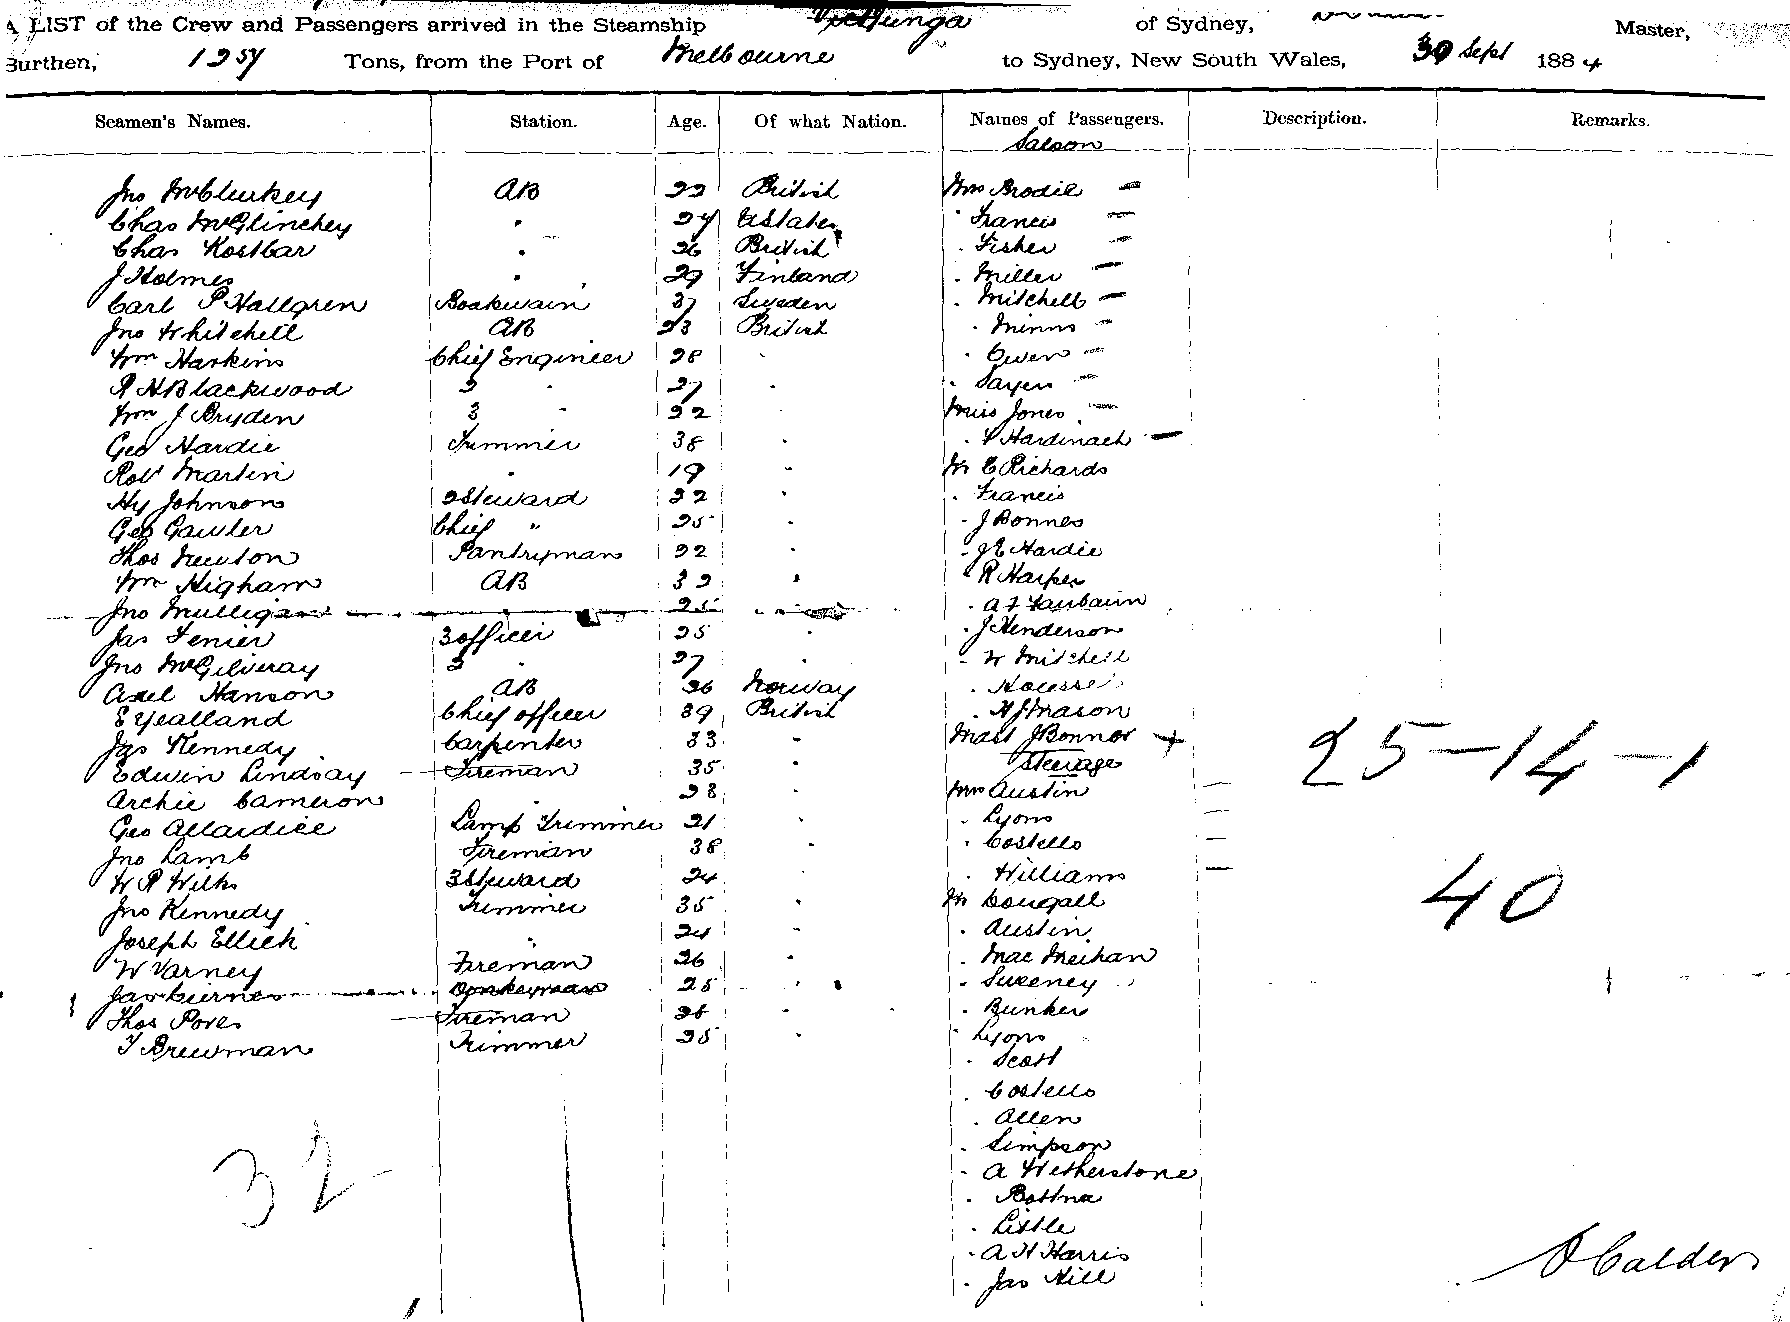 A LIST of the Crew and Passengers arrived in the Steamship of Sydney, Master,
Burthen, Tons, from the Port of Melbourne to Sydney, New South Wales, 30 Sept 1884
Seamen's Names. Station. Age. Of what Nation. Names of Passengers. Description. Remarks.
Saloon
Jno McClurkey AB 22 British Mrs Brodie —
Chas McGlinchey " 27 UStates " Francis —
Chas Kostbar " 26 British " Fisher —
J Holmes " 29 Finland " Miller —
Carl P Hallgren Boatswain 37 Sweden " Mitchell —
Jno Whitchell AB 23 British " Minns —
Wm Harkins Chief Engineer 28 " " Owen —
R H Blackwood 2 " 27 " " Sayers —
Wm J Bryden 3 " 22 Miss Jones —
Geo Hardie Trimmer 38 " " V Hardinach —
Robt Martin " 19 " Mr C Richards
Hy Johnson 2 Steward 22 " " Francis
Geo Gawler Chief " 25 " " J Bonnes
Thos Newton Pantryman 22 " " J E Hardie
Wm Higham AB 32 " " R Harper
Jno Mulligan 25 " " A F Fairbairn
Jas Fenier 3 officer 25 " " J Henderson
Jno McGilveray 3 " 27 " " W Mitchell
Axel Hanson AB 26 Norway "
E Yealland Chief officer 39 British " H J Mason
Jas Kennedy Carpenter 33 " Mast J Bonnor +
Edwin Lindsay Fireman 35 " Steerage
Archie Cameron " 28 " Mrs Austin — 25-14-1
Geo Allardice Lamp Trimmer 21 " " Lyons —
Jno Lamb Fireman 38 " " Costello —
W R Wilks 3 Steward 24 " " Williams — 40
Jno Kennedy Trimmer 35 " Mr Dougall
Joseph Ellich " 24 " " Austin
W Varney Fireman 26 " " Mac Meihan
Jas Donkeyman 25 " " Sweeney
Thos Fireman 26 " " Bunker
T Brewman Trimmer 25 " " Lyons
" Scott
" Costello
" Allen
" Simpson
32 " A Wetherstone
" Bottna
" Little
" A H Harris
" Jas Hill
Calder